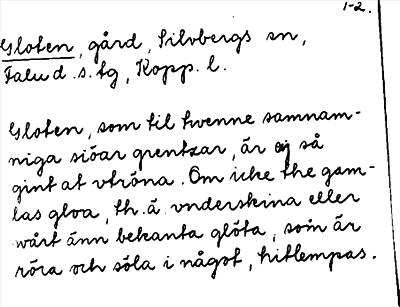 1-2.
Gloten, gård, Silvbergs sn,
Falu d. s. tg, Kopp. l.
Gloten, som til twenne samnam-
niga siöar grentzar, är ej så
gint at vtröna. Om icke the gam-
las gloa, th. ä. vnderskina eller
wårt änn bekanta glöta, som är
röra och söla i något, hitlempas.